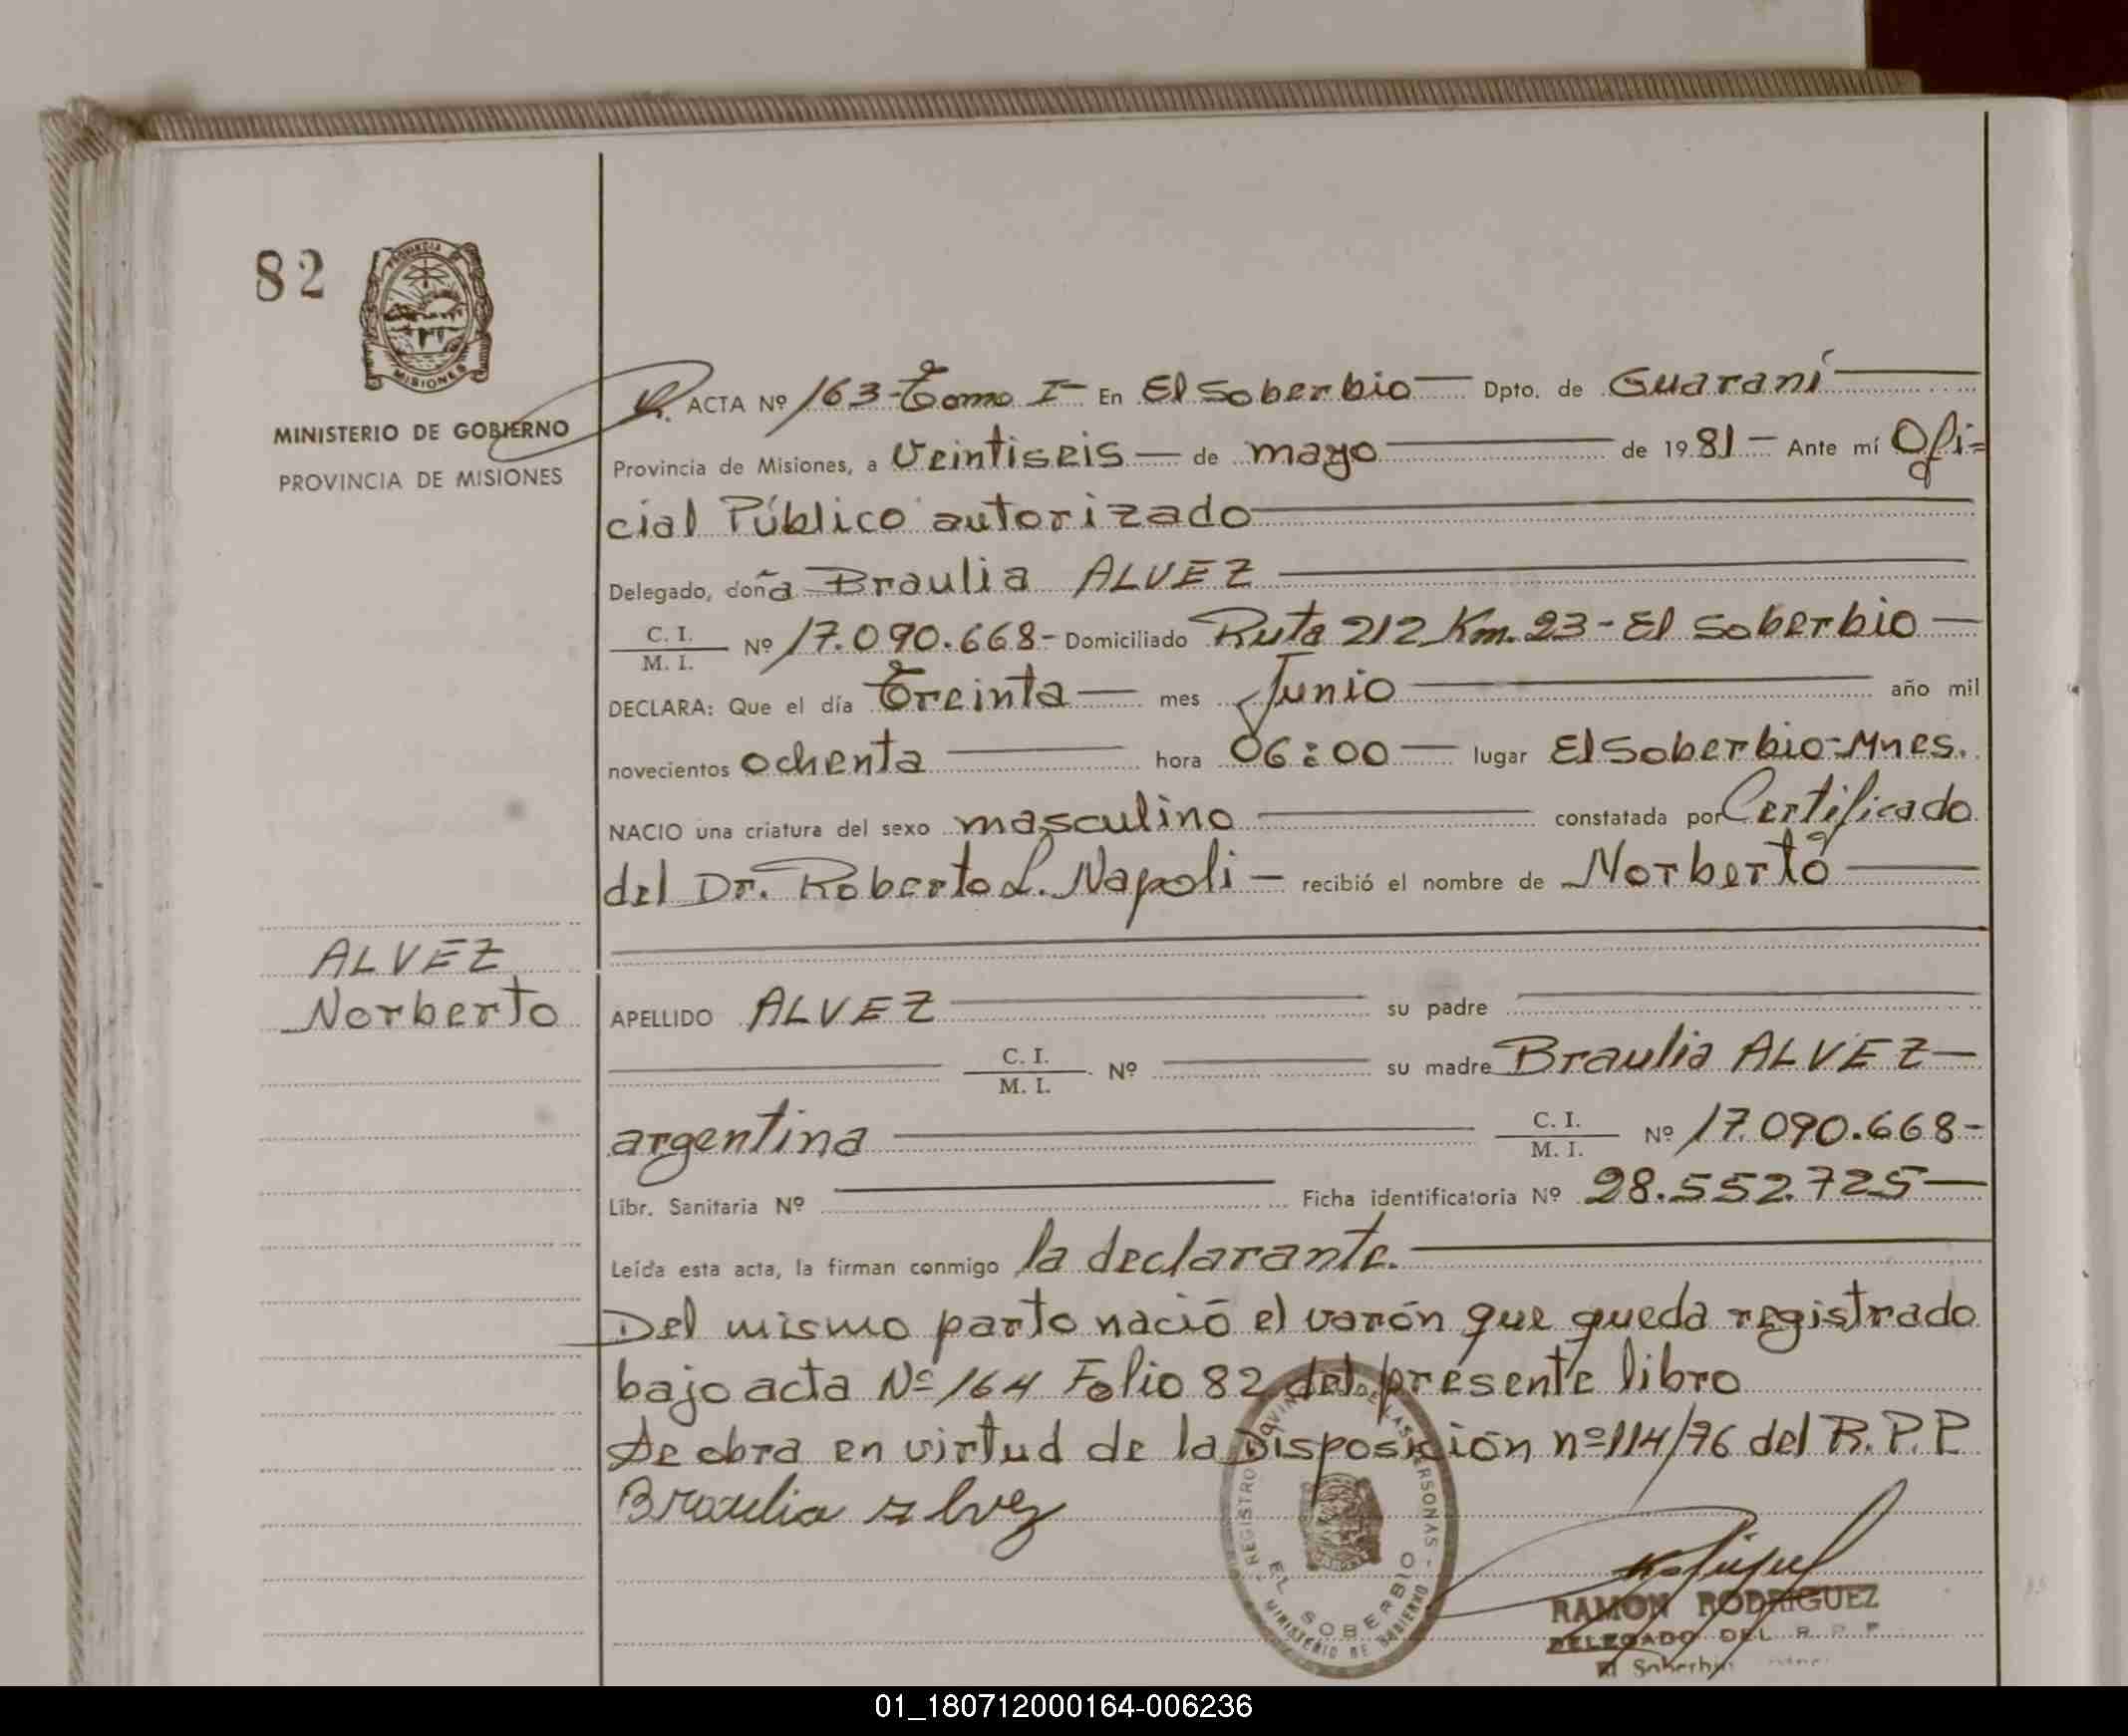 82
PROVINCIA
MISIONES
MINISTERIO DE GOBIERNO
PROVINCIA DE MISIONES
ACTA Nº 163-Tomo I- En El Soberbio — Dpto. de Guaraní —
Provincia de Misiones, a Veintiseis — de mayo — de 1981 — Ante mí Ofi=
cial Público autorizado —
Delegado, doña Braulia ALVEZ —
C. I.
M. I. Nº 17.090.668- Domiciliado Ruta 212 Km. 23 - El Soberbio —
DECLARA: Que el día Treinta — mes Junio — año mil
novecientos ochenta — hora 06:00 — lugar El Soberbio-Mnes.
NACIO una criatura del sexo masculino — constatada por Certificado
del Dr. Roberto L. Napoli — recibió el nombre de Norberto —
ALVEZ
Norberto
APELLIDO ALVEZ — su padre —
— C. I.
M. I. Nº — su madre Braulia ALVEZ —
argentina — C. I.
M. I. Nº 17.090.668-
Libr. Sanitaria Nº — Ficha identificatoria Nº 28.552.725 —
Leída esta acta, la firman conmigo la declarante. —
Del mismo parto nació el varón que queda registrado
bajo acta Nº 164 Folio 82 del presente libro
Se obra en virtud de la Disposición nº 114/76 del R.P.P
Braulia alvez
REGISTRO PROVINCIAL DE LAS PERSONAS -
EL SOBERBIO
MINISTERIO DE GOBIERNO
RAMON RODRIGUEZ
DELEGADO DEL R. P. P.
El Soberbio
01_180712000164-006236